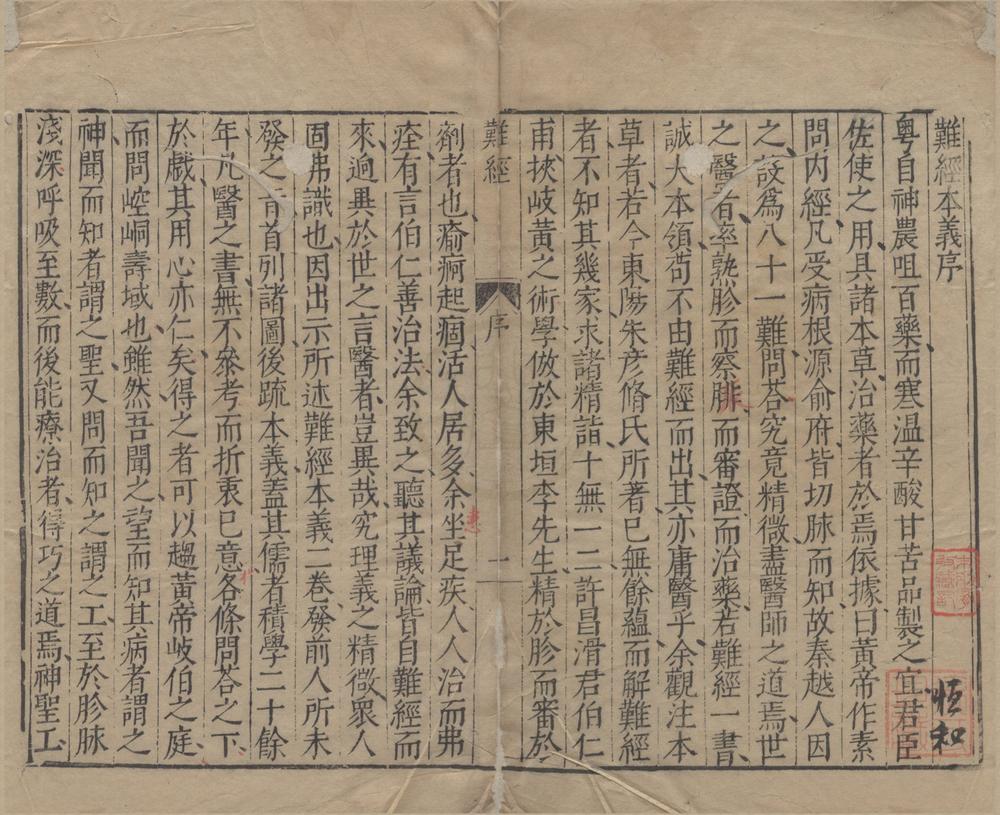 難經本義序
粤自神農咀百藥而寒温辛酸甘苦品製之宜君臣
佐使之用具諸本草治藥者於焉依據曰黃帝作素
問内經凡受病根源俞府皆切脉而知故秦越人因
之設爲八十一難問荅究竟精微盡醫師之道焉世
之醫者率熟胗而察腓而審證而治藥若難經一書
誠大本領苟不由難經而出其亦庸醫乎余觀注本
草者若今東陽朱彦脩氏所著已無餘藴而解難經
者不知其幾家求諸精詣十無一二許昌滑君伯仁
甫挾岐黃之術學倣於東垣李先生精於胗而審於
難經
序
一
劑者也瘉痾起痼活人居多余坐足疾人人治而弗
痊有言伯仁善治法余致之聽其議論皆自難經而
來迥異於世之言醫者豈異哉究理義之精微衆人
固弗識也因出示所述難經本義二卷發前人所未
發之旨首列諸圖後疏本義蓋其儒者積學二十餘
年凡醫之書無不叅考而折衷已意各條問荅之下
於戲其用心亦仁矣得之者可以趨黃帝岐伯之庭
而問崆峒壽域也雖然吾聞之望而知其病者謂之
神聞而知者謂之聖又問而知之謂之工至於胗脉
淺深呼吸至數而後能療治者得巧之道焉神聖工
恒和